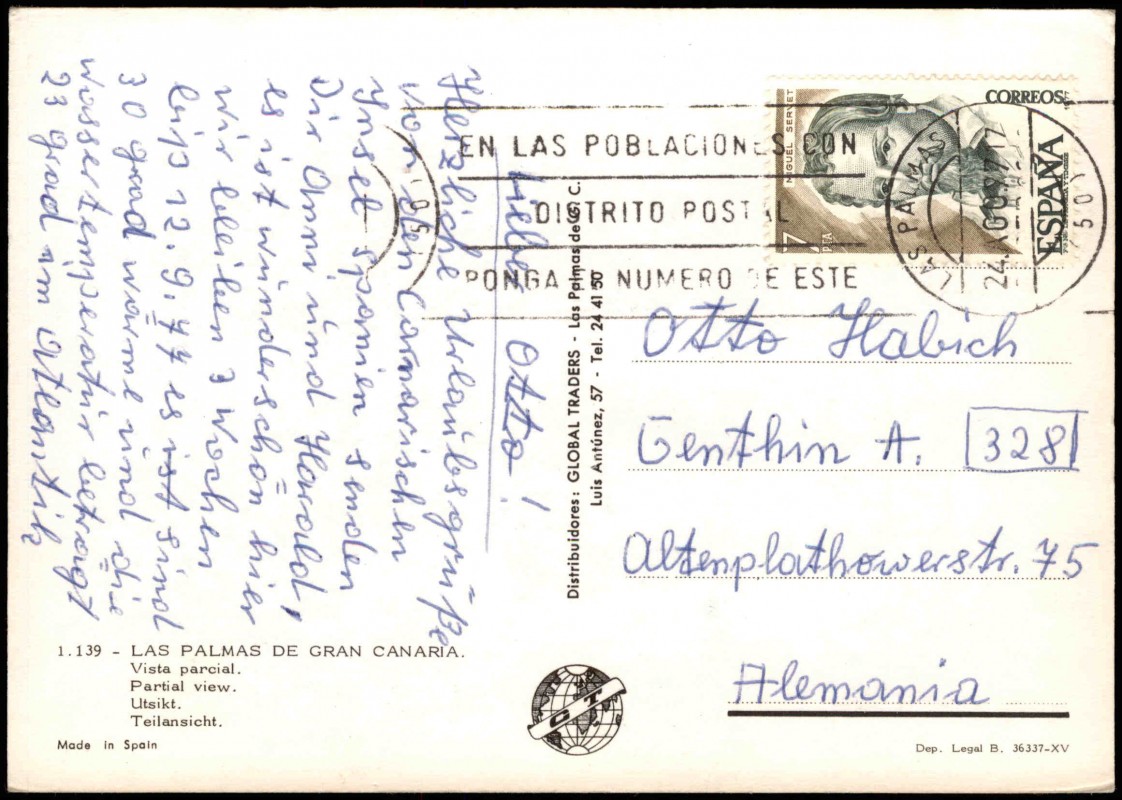 Lieber Otto!
Herzliche Urlaubsgrüße
von den Canarischen
Insel Spanien senden
Dir Anni und Harald,
es ist wunderschön hier
wir bleiben 3 Wochen
bis 12.9.77 es ist sind
30 grad warme und die
wassertemperatur betragt
23 grad am Atlantik
EN LAS POBLACIONES CON
DISTRITO POSTAL
PONGA NUMERO DE ESTE
CORREOS
ESPAÑA
MIGUEL SERVET
7 PTA
LAS PALMAS
Distribuidores: GLOBAL TRADERS - Las Palmas de G. C.
Luis Antúnez, 57 - Tel. 24 41 50
Otto Habich
Genthin A. 328
Altenplathowerstr. 75
Alemania
1.139 - LAS PALMAS DE GRAN CANARIA.
Vista parcial.
Partial view.
Utsikt.
Teilansicht.
Made in Spain
GT
Dep. Legal B. 36337-XV